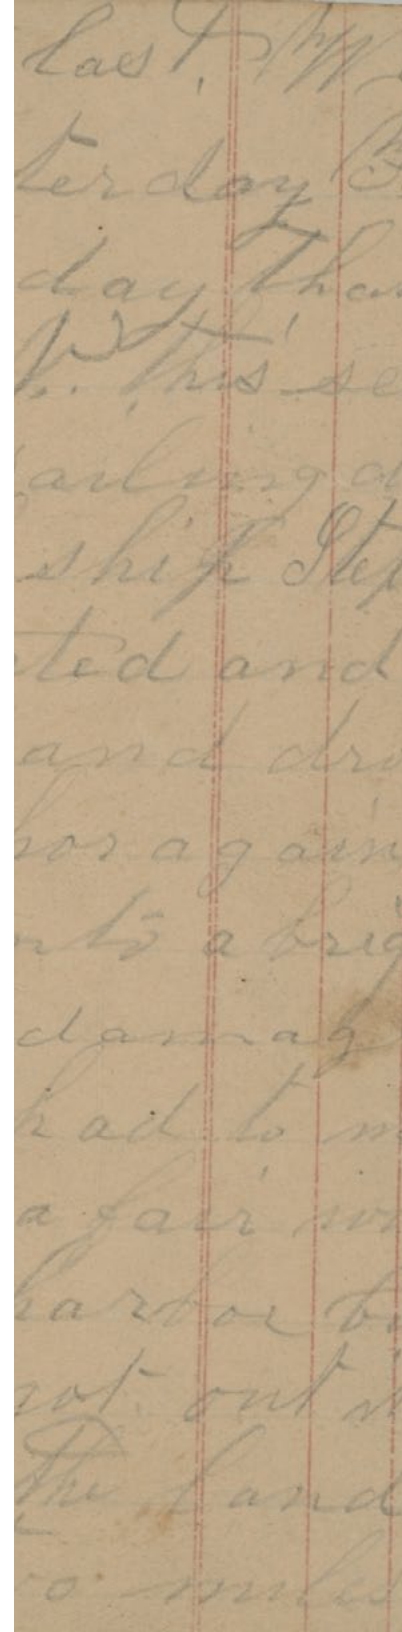 last. W
terday
day than
N. This se
ailing a
ship Step
ted and
and dro
hor again
nto a brig
damag
had to m
a fair wi
harbor bu
not out
the land
miles